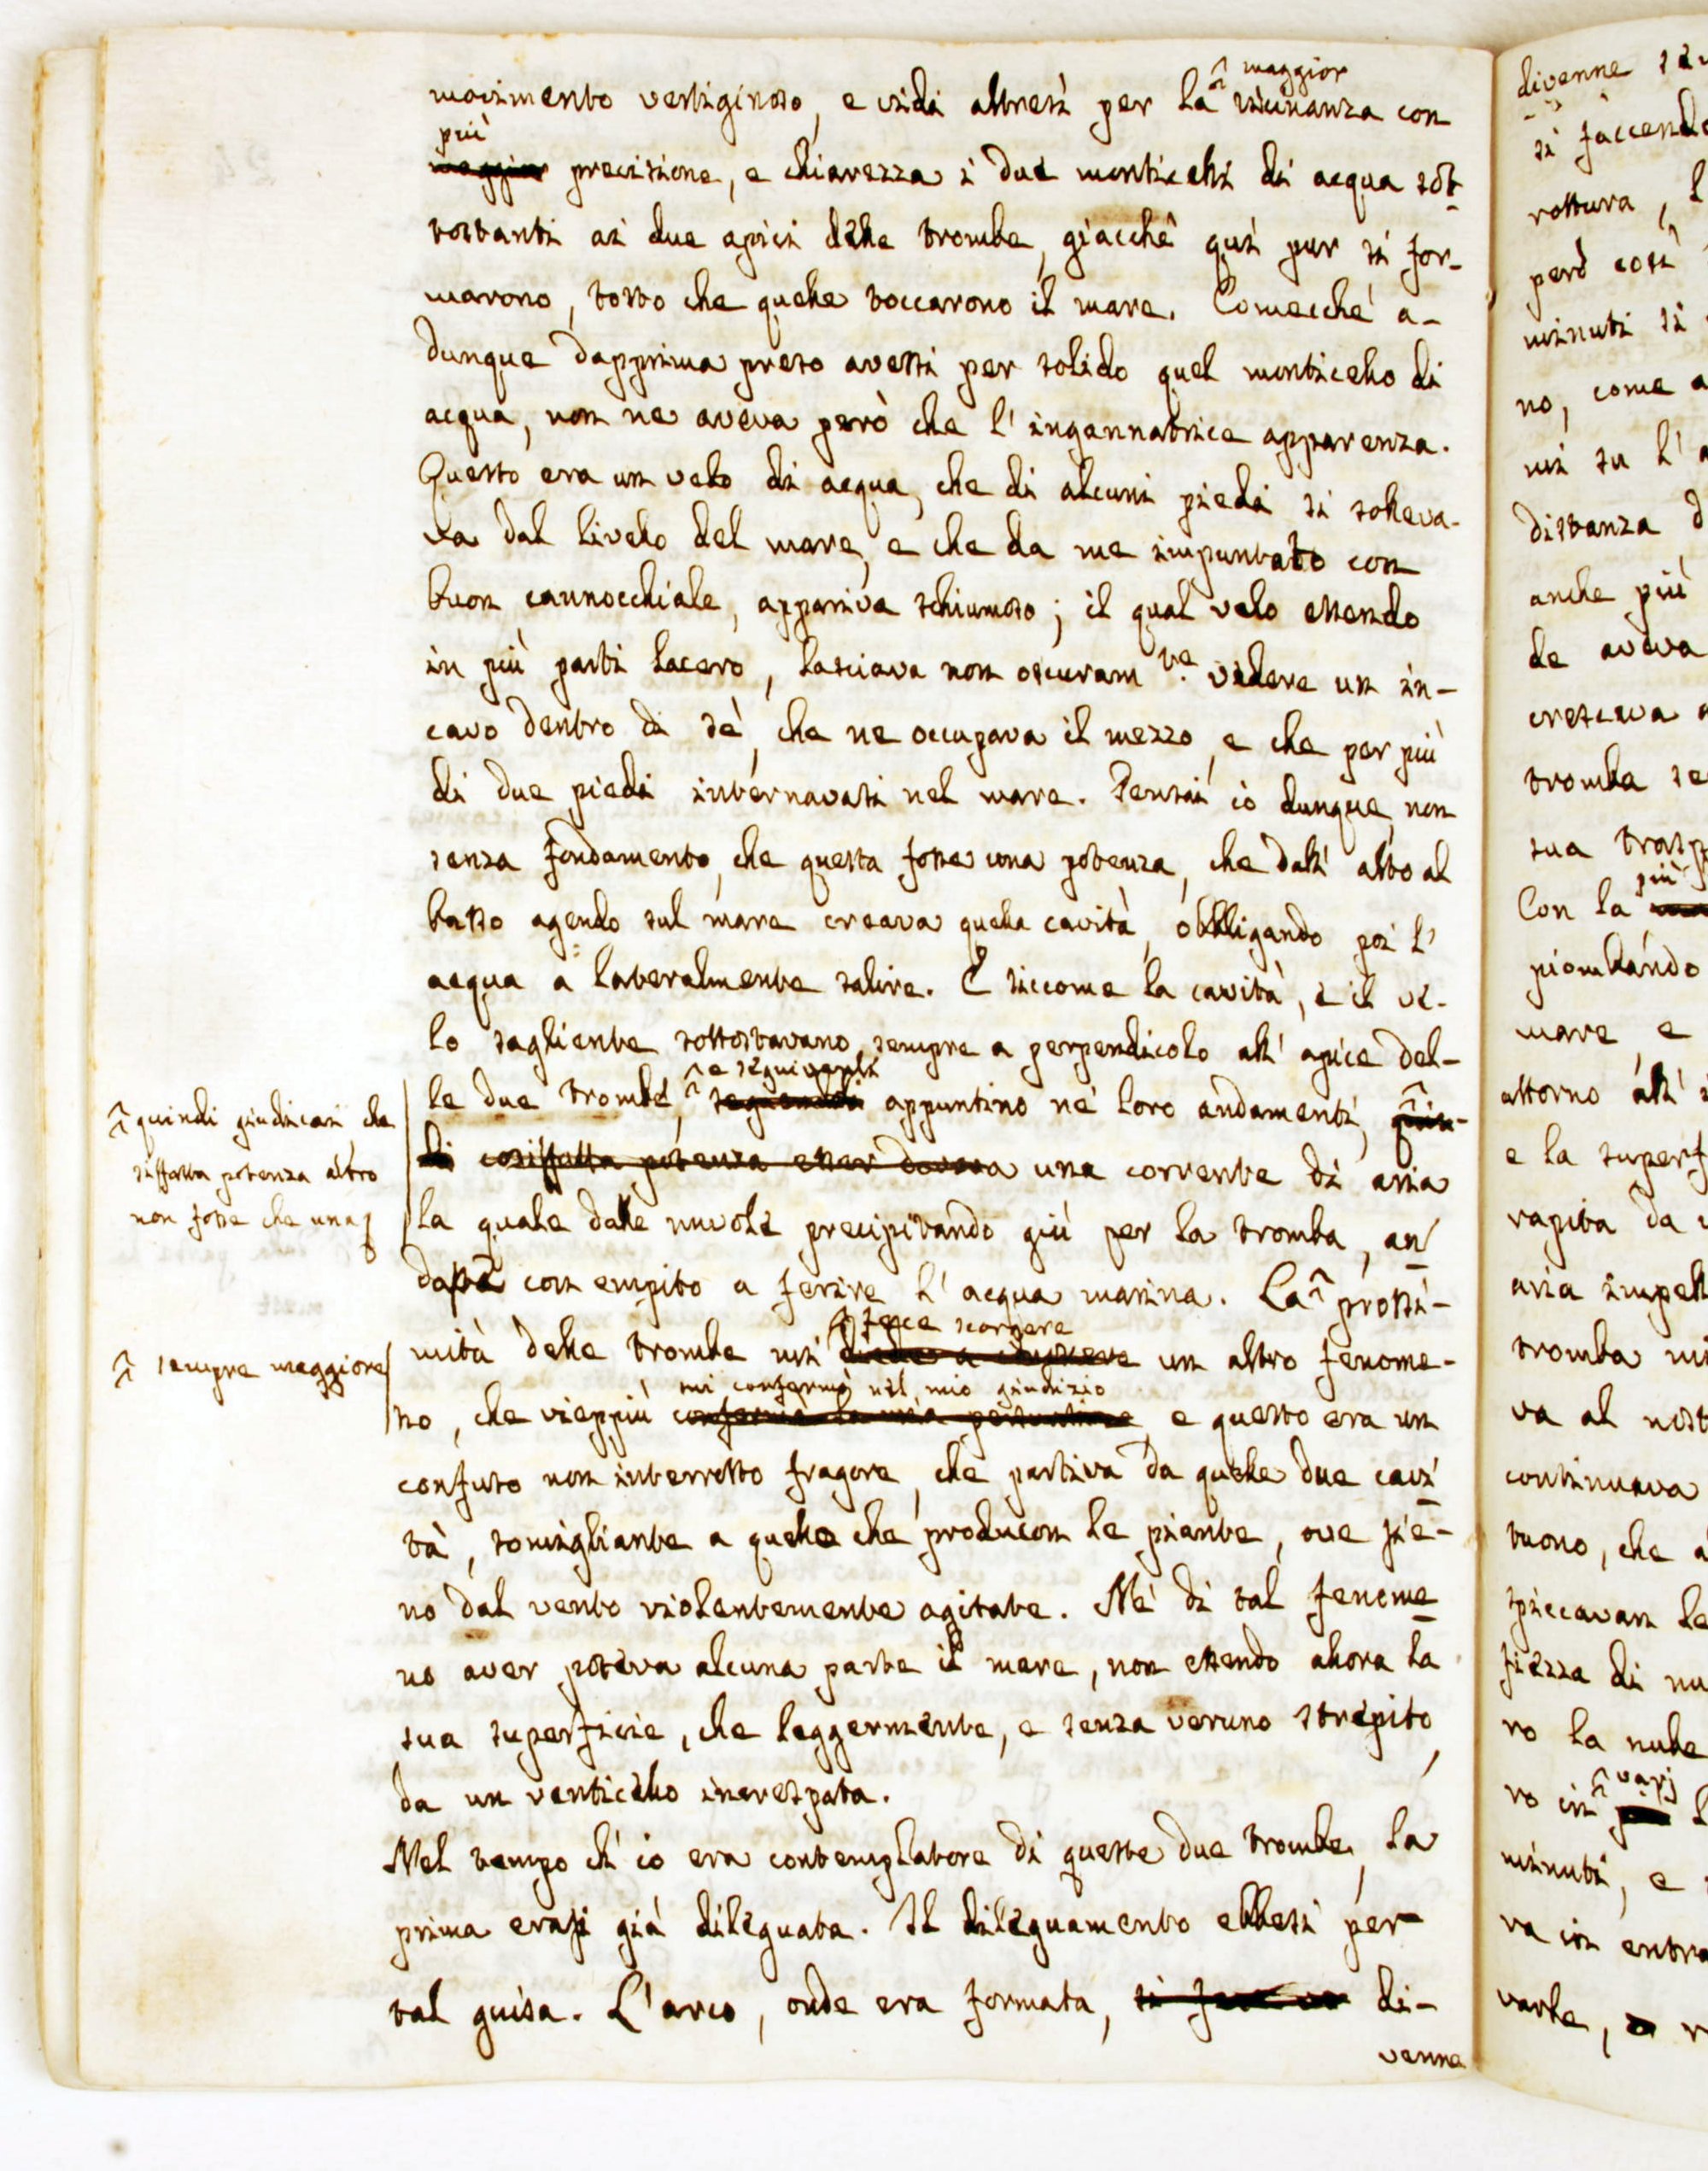 movimento vertiginoso, e vidi altresì per la ^ maggior vicinanza con
più
maggior precisione, e chiarezza i due monticelli di acqua sot-
tostanti ai due apici delle trombe, giacchè quì pur si for-
marono, tosto che quelle toccarono il mare. Comecchè a-
dunque dapprima preso avessi per solido quel monticello di
acqua, non ne aveva però che l' ingannatrice apparenza.
Questo era un velo di acqua, che di alcuni piedi si solleva-
va dal livello del mare, e che da me impuntato con
buon cannocchiale, appariva schiumoso; il qual velo essendo
in più parti lacero, lasciava non oscuram.te vedere un in-
cavo dentro di sè, che ne occupava il mezzo, e che per più
di due piedi internavasi nel mare. Pensai io dunque, non
senza fondamento, che questa fosse una potenza, che dall' alto al
basso agendo sul mare creava quella cavità, obbligando poi l'
acqua a lateralmente salire. E siccome la cavità, e il ve-
lo sagliente sottostavano sempre a perpendicolo all' apice del-
^ e seguivanli
le due trombe, ^ seguendoli appuntino ne' loro andamenti, ^ quin-
di cosiffatta potenza esser doveva una corrente di aria
la quale dalle nuvole precipitando giù per la tromba, an-
dasse con empito a ferire l' acqua marina. La ^ prossi-
^ fece scorgere
mità delle trombe mi diede a conoscere un altro fenome-
mi confermò nel mio giudizio
no, che vieppiù confermò la mia persuasione e questo era un
confuso non interrotto fragore, che partiva da quelle due cavi-
tà, somigliante a quello che producon le piante, ove sie-
no dal vento violentemente agitate. Nè di tal fenome-
no aver poteva alcuna parte il mare, non essendo allora la
sua superficie, che leggermente, e senza veruno strepito,
da un venticello increspata.
Nel tempo ch' io era contemplatore di queste due trombe, la
prima erasi già dileguata. Il dileguamento ebbesi per
tal guisa. L' arco, onde era formata, si di-
venne
^ quindi giudicai che
siffatta potenza altro
non fosse che una
^ sempre maggiore
divenne
si faccend
rottura, l
però così
minuti si
no, come a
ni su l' a
distanza d
anche più
de aveva
cresceva
tromba se
sua trasp
più
Con la
piombando
mare, e
attorno all'
e la superf
rapita da
aria impell
tromba mi
va al nost
continuava
tuono, che a
spiccavan le
fiezza di nu
ro la nube
^ varj
ro in l
minuti, e
va in entra
varle,